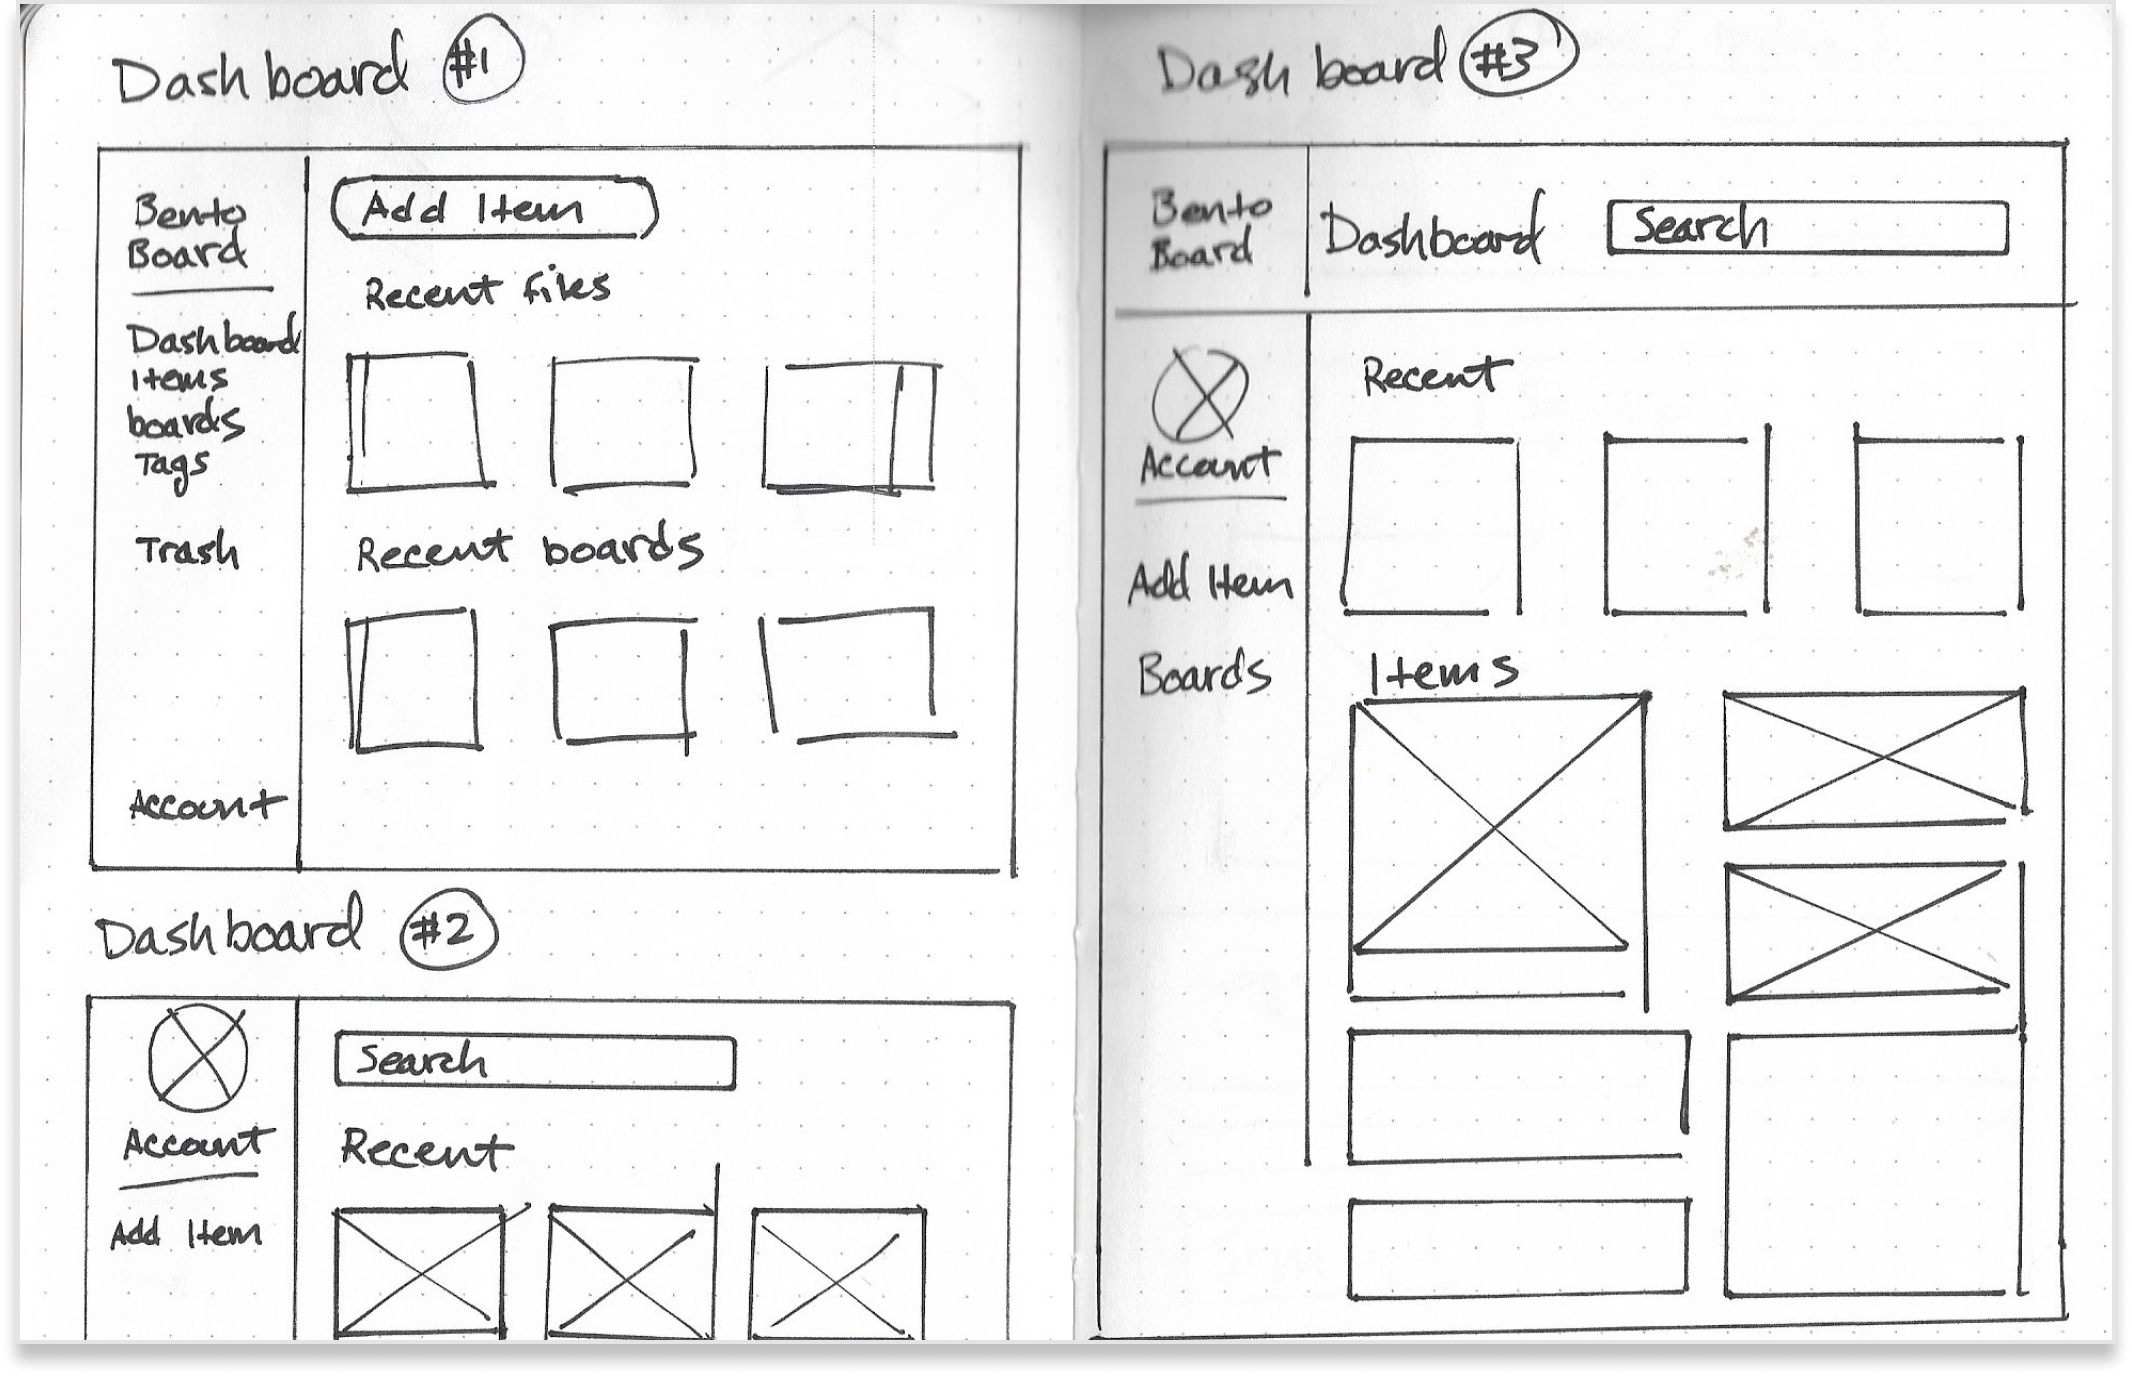 Dashboard #1
Bento
Board
Dashboard
Items
boards
Tags
Trash
Account
Add Item
Recent files
Recent boards
Dashboard #2
Account
Add Item
Search
Recent
Dashboard #3
Bento
Board
Dashboard
Search
Account
Add Item
Boards
Recent
Items